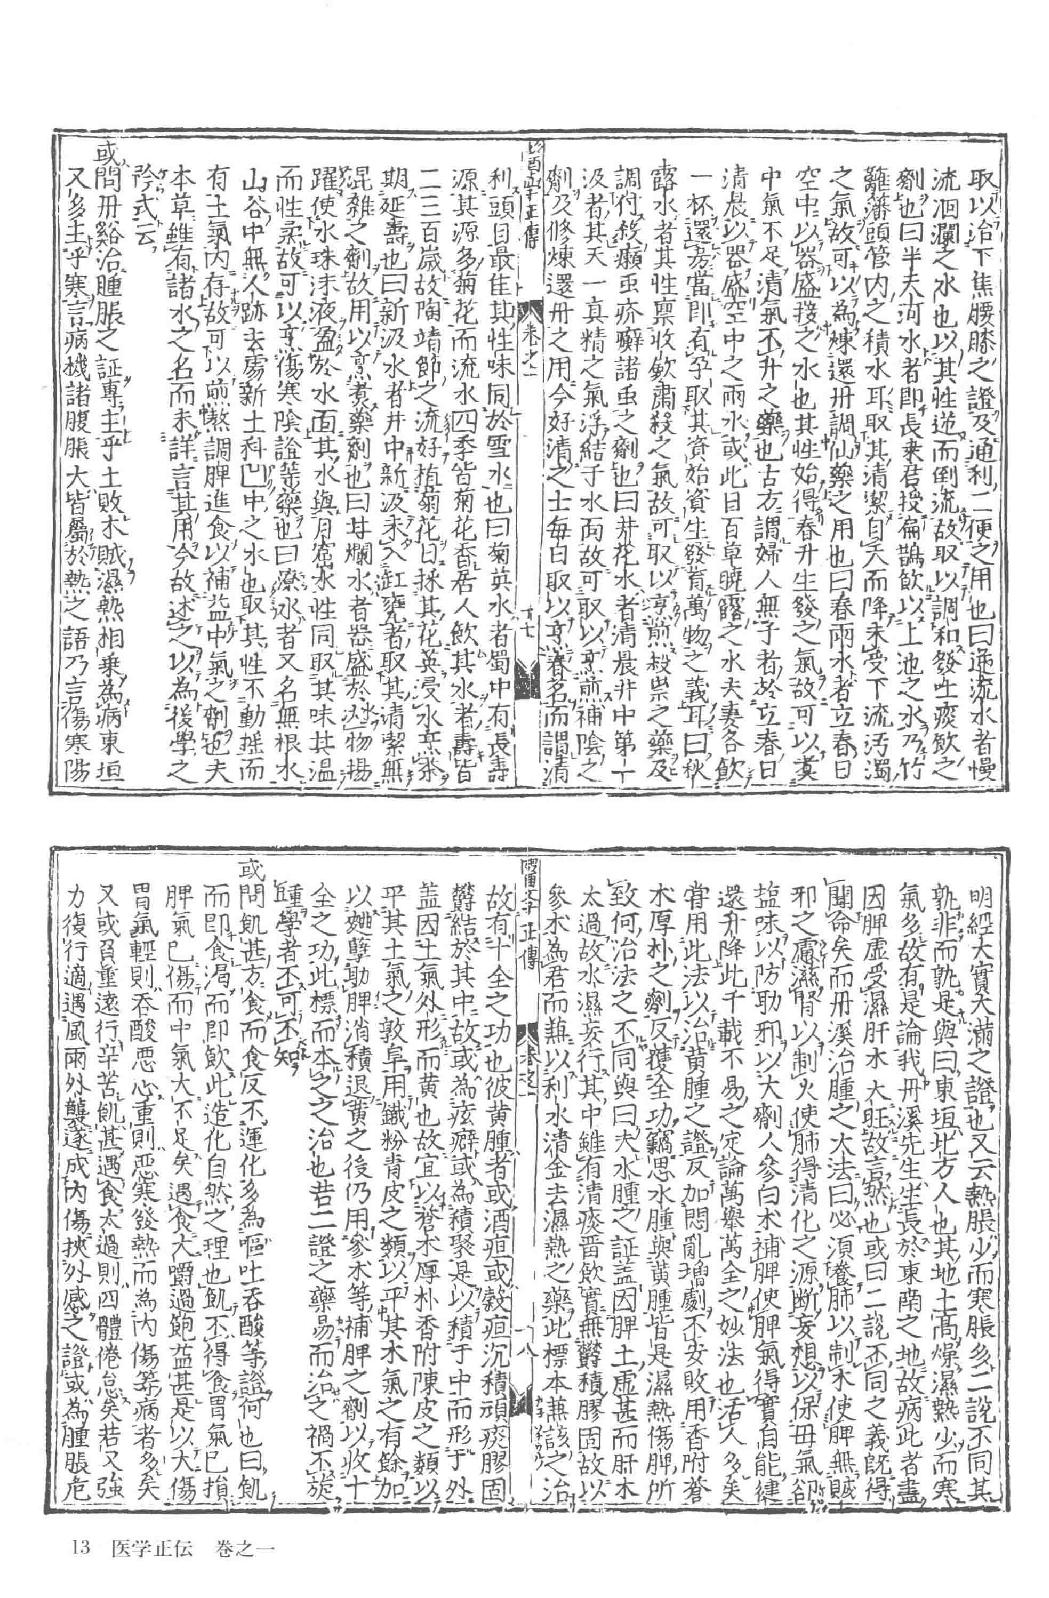 取以治下焦腰膝之證及通利二便之用也曰逆流水者慢
流洄瀾之水也以其性逆而倒流故取以調和發吐痰飲之
劑也曰半夫河水者即長桒君授扁鵲飲以上池之水乃竹
籬藩頭管内之積水耳取其清潔自天而降未受下流污濁
之氣故可以為煉還丹調仙藥之用也曰春雨水者立春日
空中以器盛接之水也其性始得春升生發之氣故可以煑
中氣不足清氣不升之藥也古方謂婦人無子者於立春日
清晨以器盛空中之雨水或此日百草曉露之水夫妻各飲
一杯還房當即有孕取其資始資生發育萬物之義耳曰秋
露水者其性禀收歛肅殺之氣故可取以烹煎殺祟之藥及
調付殺癩虫疥癬諸虫之劑也曰井花水者清晨井中第一
汲者其天一真精之氣浮結于水面故可取以烹煎補陰之
劑及修煉還丹之用今好清之士每日取以烹春茗而謂清
醫學正傳
卷之一
十七
利頭目最佳其性味同於雪水也曰菊英水者蜀中有長壽
源其源多菊花而流水四季皆菊花香居人飲其水者壽皆
二三百歳故陶靖節之流好植菊花日採其花英浸水烹茶
期延壽也曰新汲水者井中新汲未入缸甕者取其清潔無
混雜之劑故用以烹煮藥劑也曰甘爛水者器盛於水物揚
躍使水珠沫液盈於水面其水與月窟水性同取其味甘温
而性柔故可以烹傷寒陰證等藥也曰潦水者又名無根水
山谷中無人跡去處新土科凹中之水也取其性不動揺而
有土氣内存故可以煎熬調脾進食以補益中氣之劑也夫
本草雖有諸水之名而未詳言其用今故述之以為後學之
矜式云
或問丹谿治腫脹之証專主乎土敗木賊濕熱相乗為病東垣
又多主乎寒言病機諸腹脹大皆屬於熱之語乃言傷寒陽
明經大實大滿之證也又云熱脹少而寒脹多二説不同其
孰非而孰是與曰東垣北方人也其地土高燥濕熱少而寒
氣多故有是論我丹溪先生生長於東南之地故病此者盡
因脾虚受濕肝木大旺故言然也或曰二説不同之義既得
聞命矣而丹溪治腫之大法曰必須養肺以制木使脾無賊
邪之慮濕腎以制火使肺得清化之源断妄想以保母氣却
塩味以防助邪以大劑人參白术補脾使脾氣得實自能健
還升降此千載不易之定論萬舉萬全之妙法也活人多矣
嘗用此法以治黄腫之證反加悶亂增劇不安敗用香附蒼
术厚朴之劑反獲全功竊思水腫與黄腫皆是濕熱傷脾所
致何治法之不同與曰夫水腫之証盖因脾土虚甚而肝木
太過故水濕妄行其中雖有清痰晋飲實無欝積膠固故以
參术為君而兼以利水清金去濕熱之藥此標本兼該之治
醫學正傳
卷之一
十八
故有十全之功也彼黄腫者或酒疸或穀疸沉積頑痰膠固
欝結於其中故或為痃癖或為積聚是以積于中而形于外
盖因土氣外形而黄也故宜以蒼术厚朴香附陳皮之類以
平其土氣之敦阜用鐵粉青皮之類以平其木氣之有餘加
以麯糵助脾消積退黄之後仍用參术等補脾之劑以收十
全之功此標而本之之治也若二證之藥易而治之禍不旋
踵學者不可不知
或問飢甚方食而食反不運化多為嘔吐吞酸等證何也曰飢
而即食渴而即飲此造化自然之理也飢不得食胃氣已損
脾氣已傷而中氣大不足矣遇食大嚼過飽益甚是以大傷
胃氣輕則吞酸悪心重則悪寒發熱而為内傷等病者多矣
又或負重遠行辛苦飢甚遇食太過則四體倦怠矣若又強
力復行適遇風雨外襲遂成内傷挾外感之證或為腫脹危
13 医学正伝 巻之一